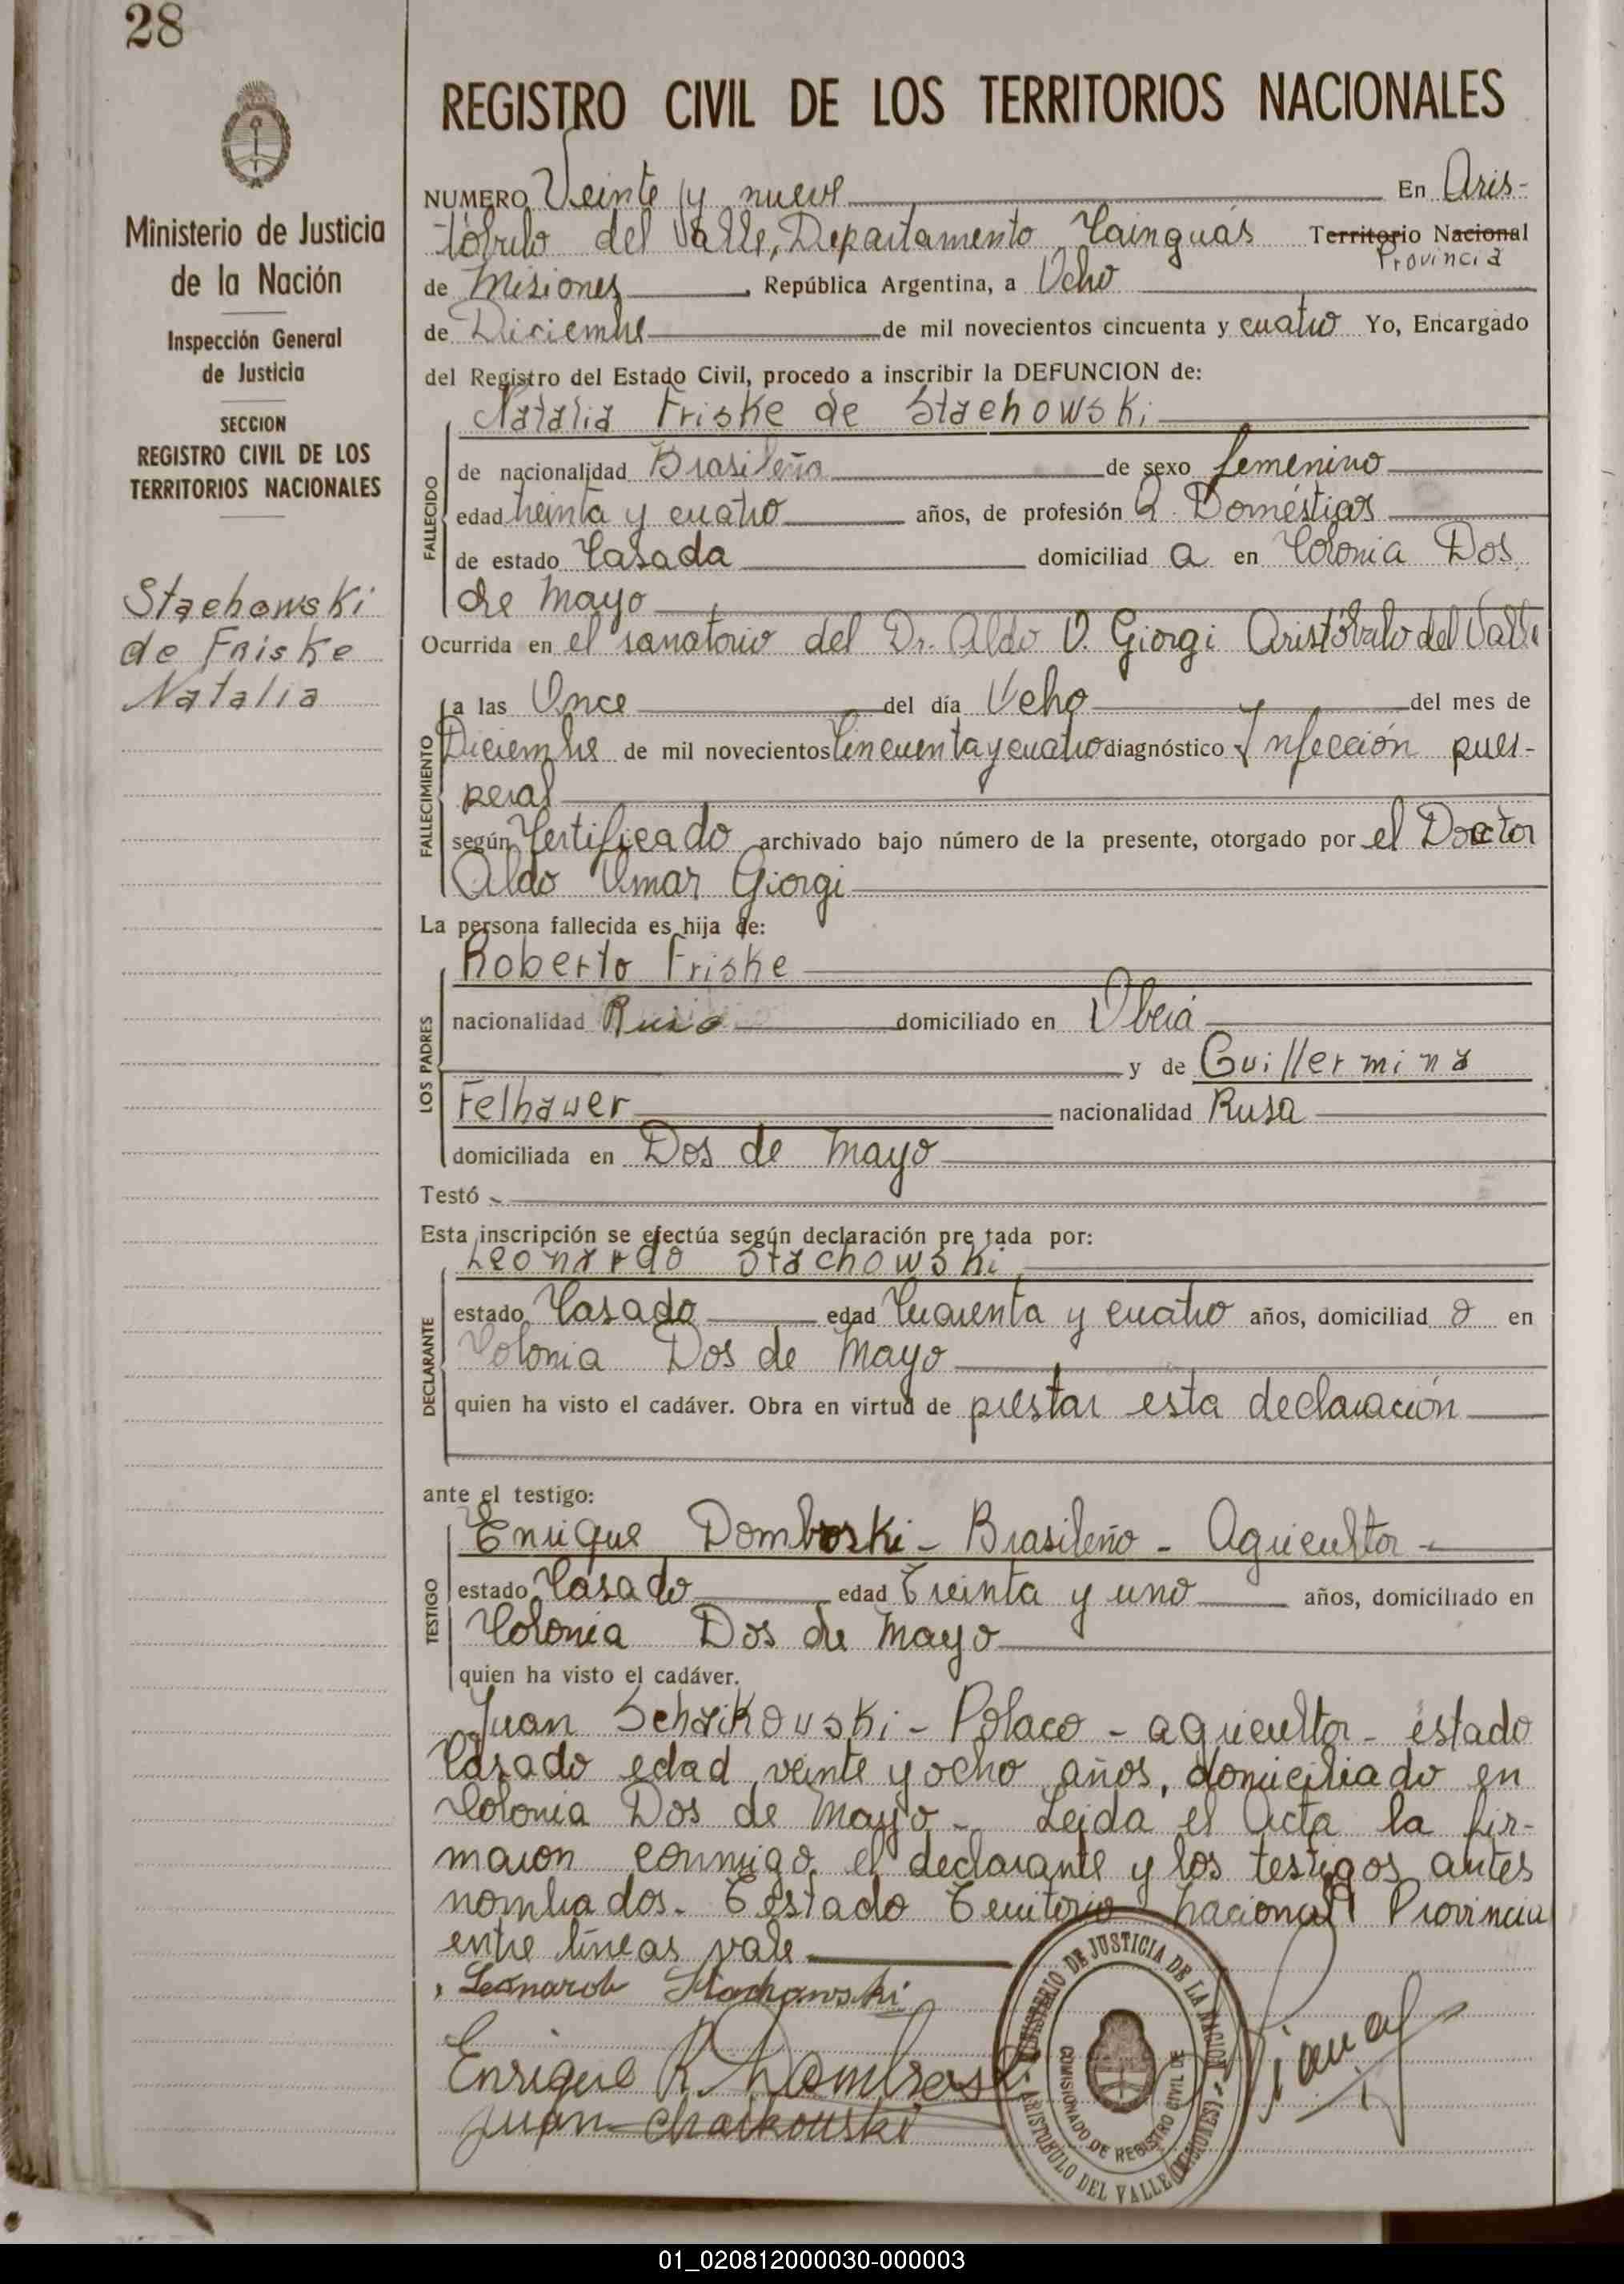 28
Ministerio de Justicia
de la Nación
Inspección General
de Justicia
SECCION
REGISTRO CIVIL DE LOS
TERRITORIOS NACIONALES
Stachowski
de Friske
Natalia
REGISTRO CIVIL DE LOS TERRITORIOS NACIONALES
NUMERO Veinte y nueve En Aris-
tóbulo del Valle, Departamento Cainguás Territorio Nacional
Provincia
de Misiones, República Argentina, a Ocho
de Diciembre de mil novecientos cincuenta y cuatro Yo, Encargado
del Registro del Estado Civil, procedo a inscribir la DEFUNCION de:
Natalia Friske de Stachowski
FALLECIDO
de nacionalidad Brasileña de sexo femenino
edad treinta y cuatro años, de profesión Q. Domésticas
de estado Casada domiciliad a en Colonia Dos
de Mayo
Ocurrida en el sanatorio del Dr. Aldo O. Giorgi Aristóbulo del Valle
FALLECIMIENTO
a las Once del día Ocho del mes de
Diciembre de mil novecientos Cincuenta y cuatro diagnóstico Infección puer-
peral
según Certificado archivado bajo número de la presente, otorgado por el Doctor
Aldo Omar Giorgi
La persona fallecida es hija de:
Roberto Friske
LOS PADRES
nacionalidad Ruso domiciliado en Oberá
y de Guillermina
Felhawer nacionalidad Rusa
domiciliada en Dos de Mayo
Testó -
Esta inscripción se efectúa según declaración pre tada por:
Leonardo Stachowski
DECLARANTE
estado Casado edad Cuarenta y cuatro años, domiciliad o en
Colonia Dos de Mayo
quien ha visto el cadáver. Obra en virtud de prestar esta declaración
ante el testigo:
Enrique Domboski - Brasileño - Agricultor -
TESTIGO
estado Casado edad Treinta y uno años, domiciliado en
Colonia Dos de Mayo
quien ha visto el cadáver.
Juan Schaikowski - Polaco - agricultor - estado
Casado edad veinte y ocho años, domiciliado en
Colonia Dos de Mayo - Leida el Acta la fir-
maron conmigo el declarante y los testigos antes
nombrados. Testado Territorio Nacional Provincia
entre líneas vale
Leonardo Stachowski
Enrique R. Dombroski
Juan Chaikouski
MINISTERIO DE JUSTICIA DE LA NACION
COMISIONADO DE REGISTRO CIVIL DE
ARISTOBULO DEL VALLE (MISIONES)
01_020812000030-000003